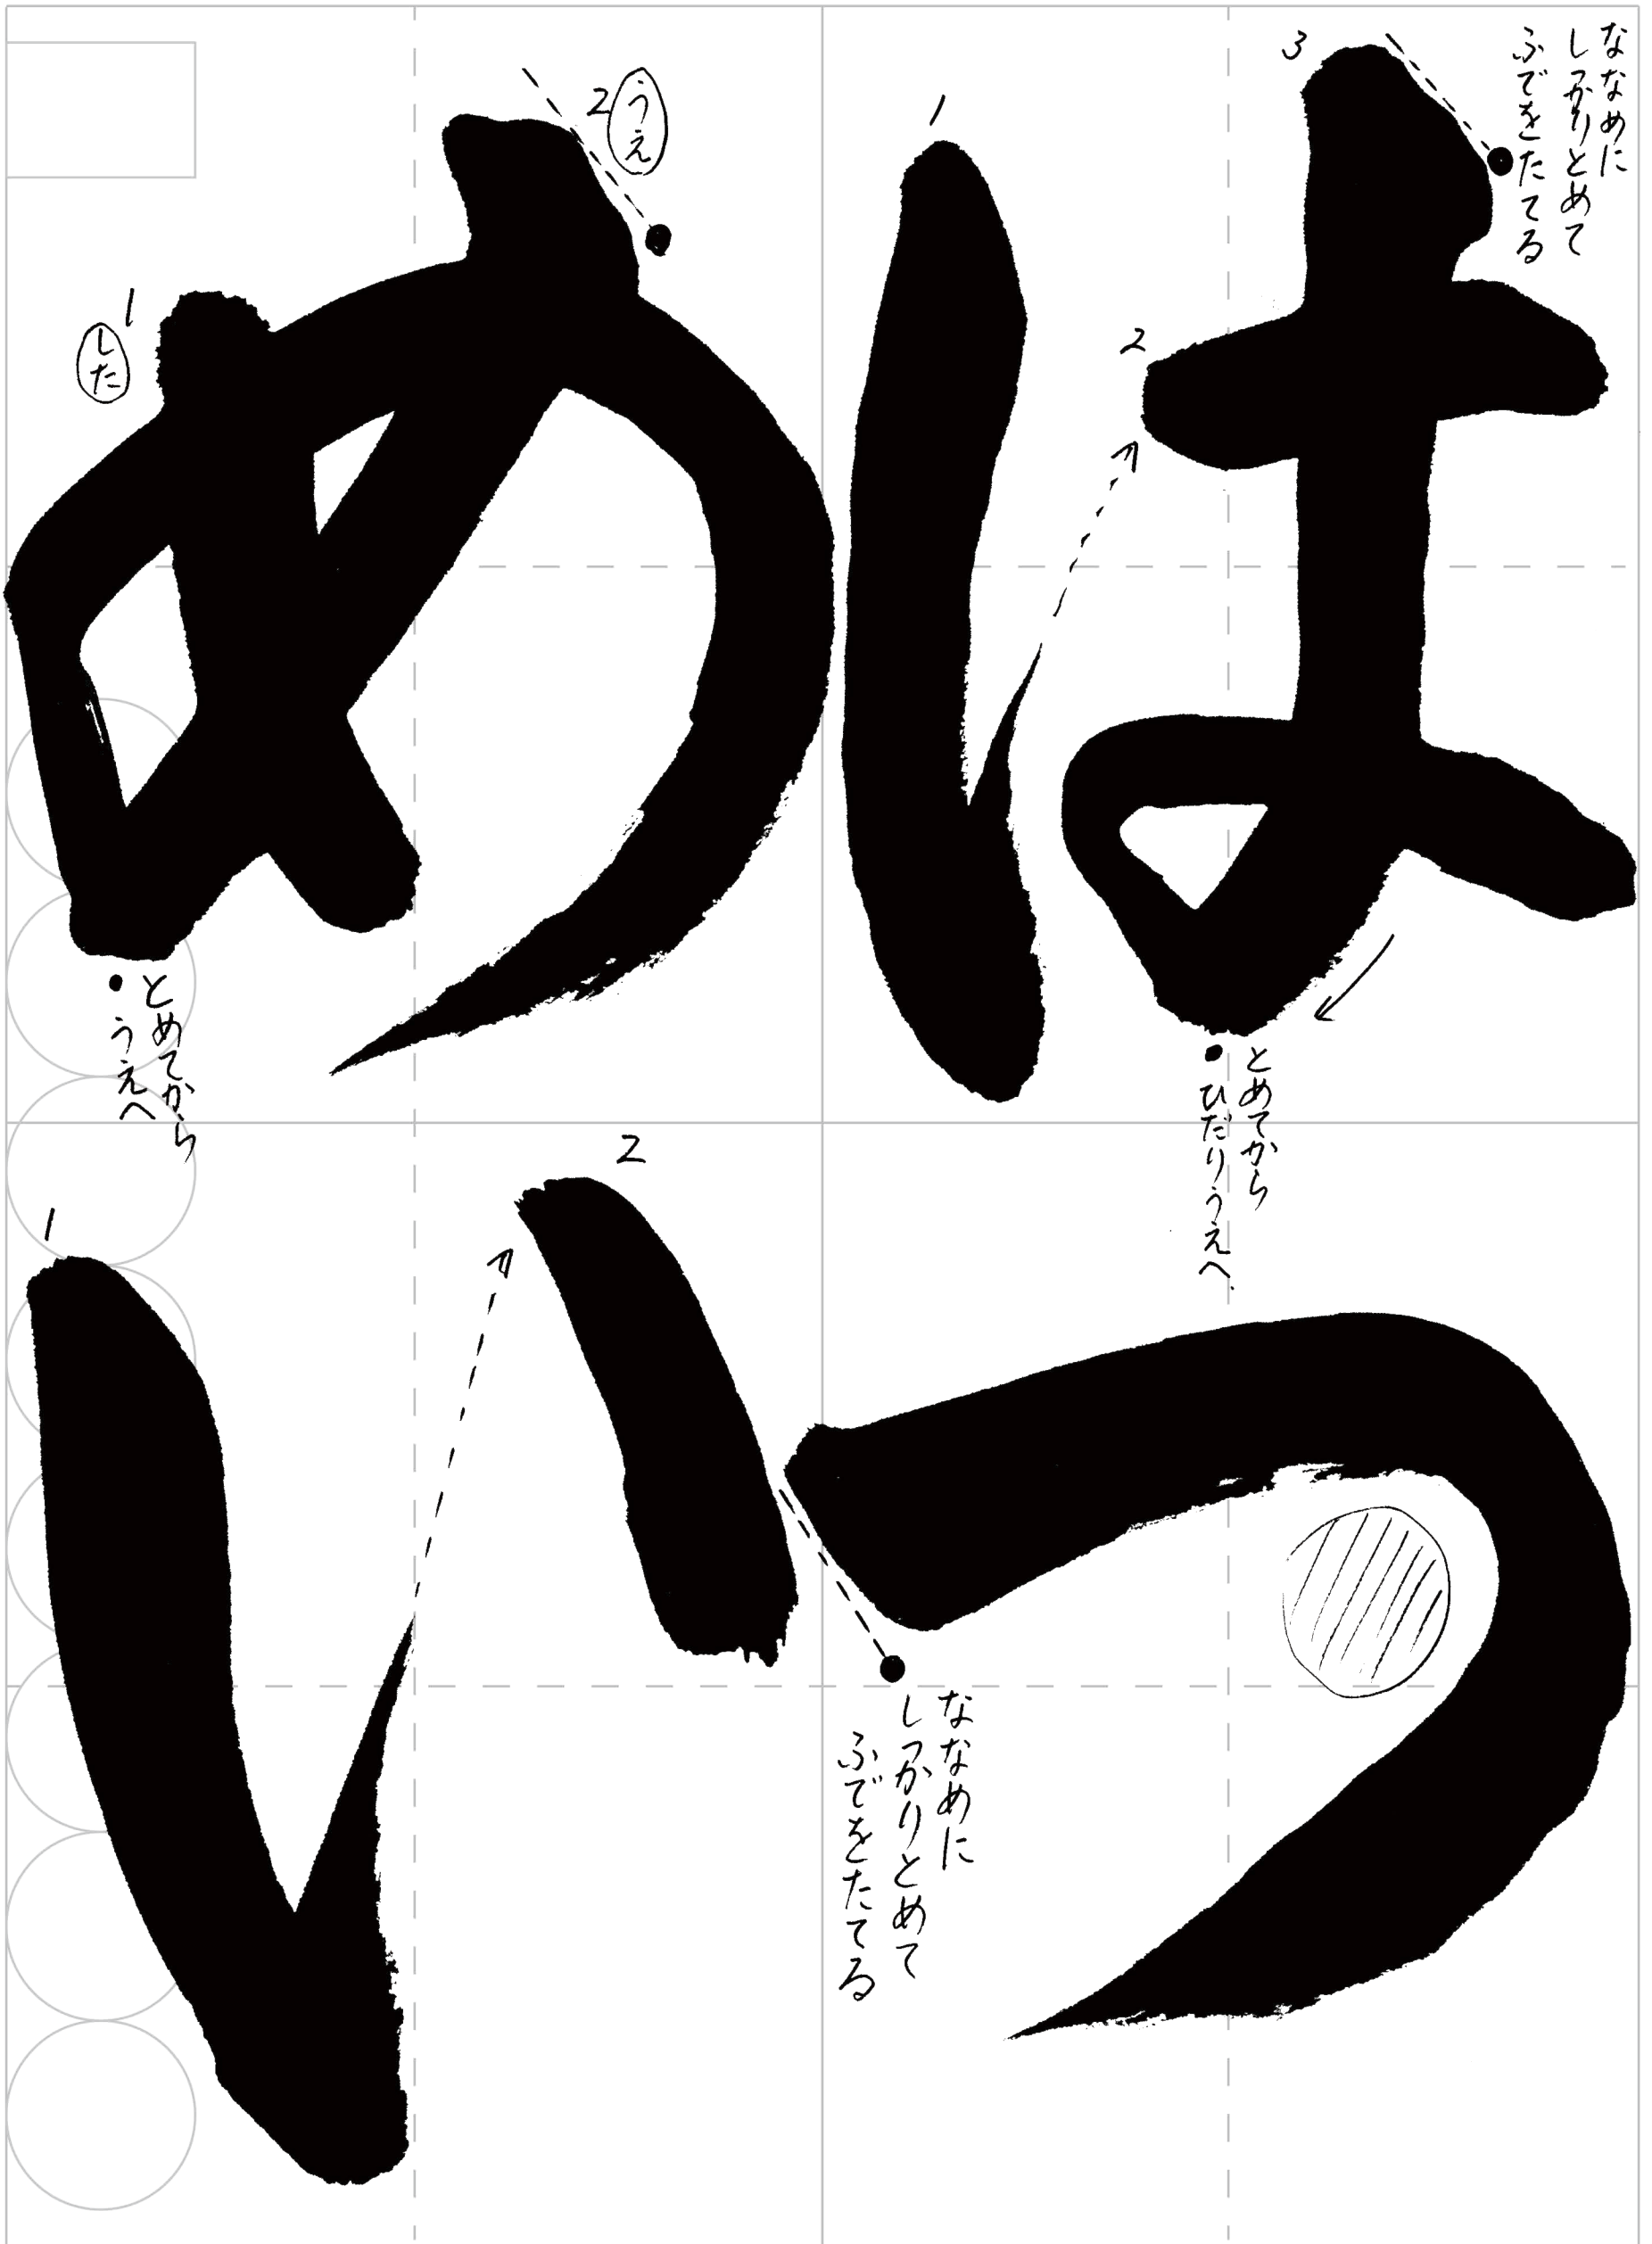 はつ
めい
3
ななめに
しっかりとめて
ふでをたてる
1
2
とめてから
ひだりうえへ
ななめに
しっかりとめて
ふでをたてる
2
うえ
1
した
とめてから
うえへ
2
1